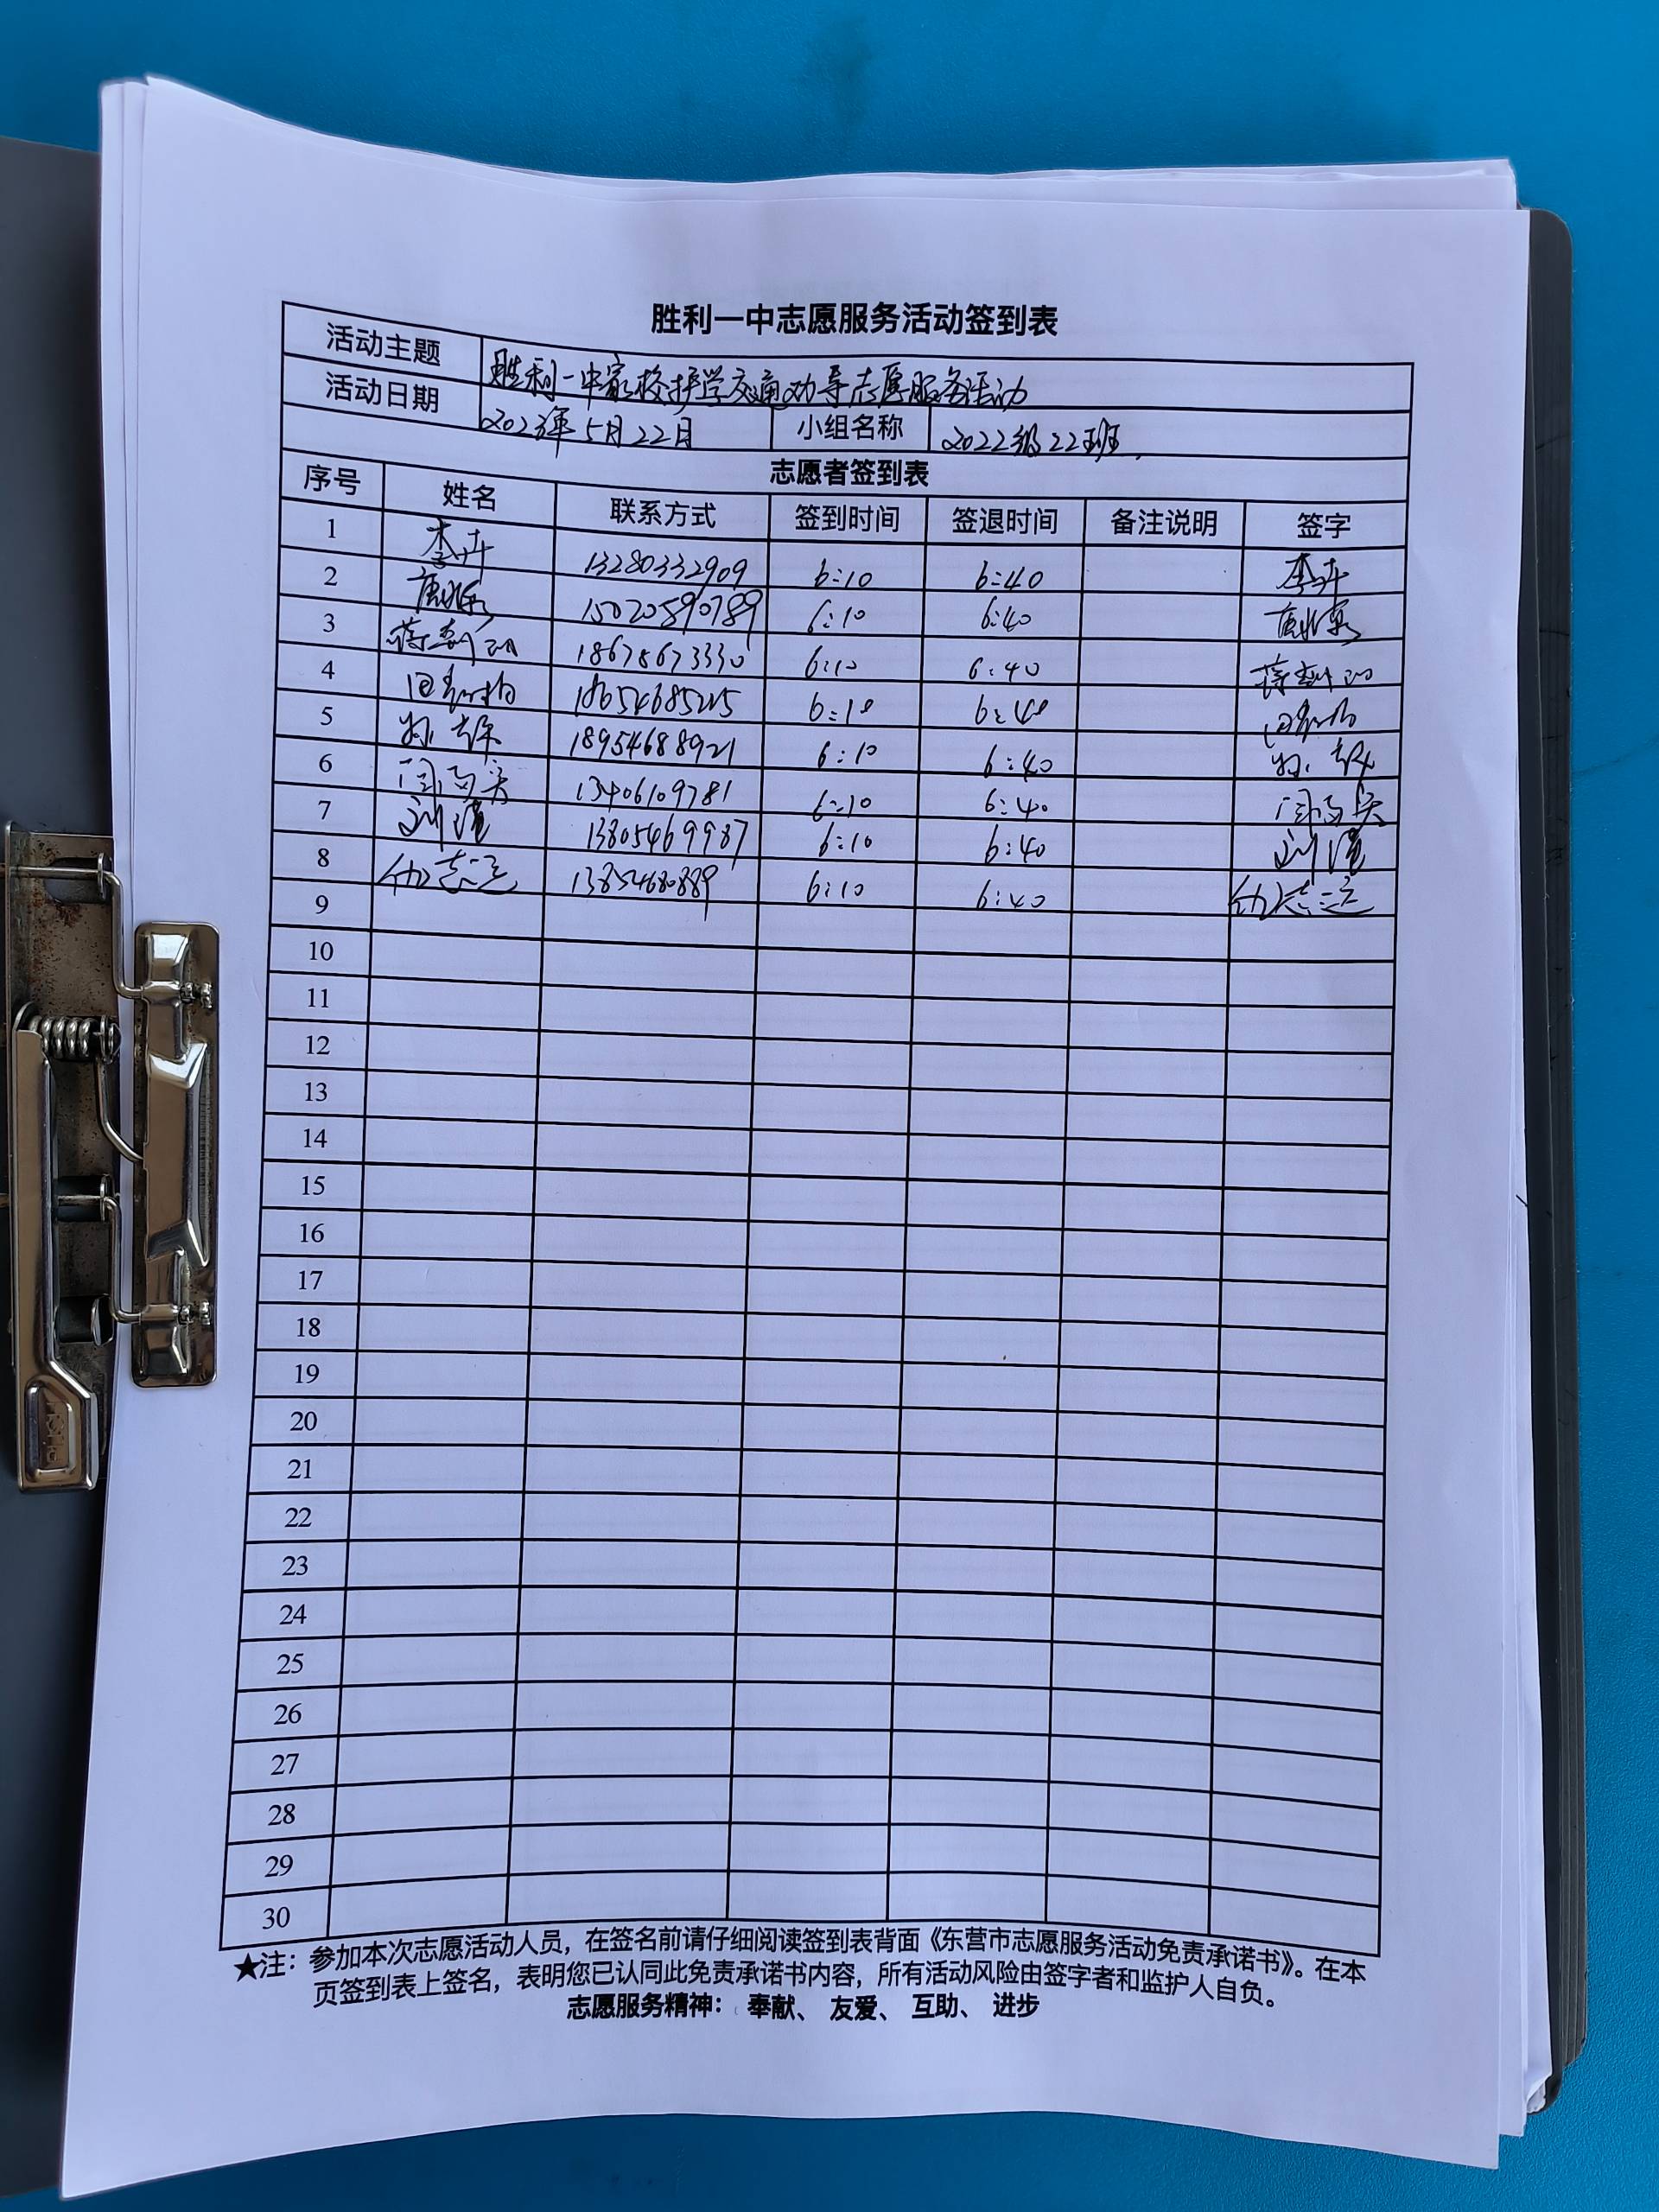 胜利一中志愿服务活动签到表
活动主题 胜利一中家校护学交通劝导志愿服务活动
活动日期 2023年5月22日 小组名称 2022级22班
志愿者签到表
序号 姓名 联系方式 签到时间 签退时间 备注说明 签字
1 13280332909 6:10 6:40
2 15020590789 6:10 6:40
3 18678673330 6:10 6:40
4 18654685215 6:10 6:40
5 18954688921 6:10 6:40
6 13406109781 6:10 6:40
7 13805469987 6:10 6:40
8 13854680889 6:10 6:40
9
10
11
12
13
14
15
16
17
18
19
20
21
22
23
24
25
26
27
28
29
30
★注：参加本次志愿活动人员，在签名前请仔细阅读签到表背面《东营市志愿服务活动免责承诺书》。在本
页签到表上签名，表明您已认同此免责承诺书内容，所有活动风险由签字者和监护人自负。
志愿服务精神：奉献、 友爱、 互助、 进步